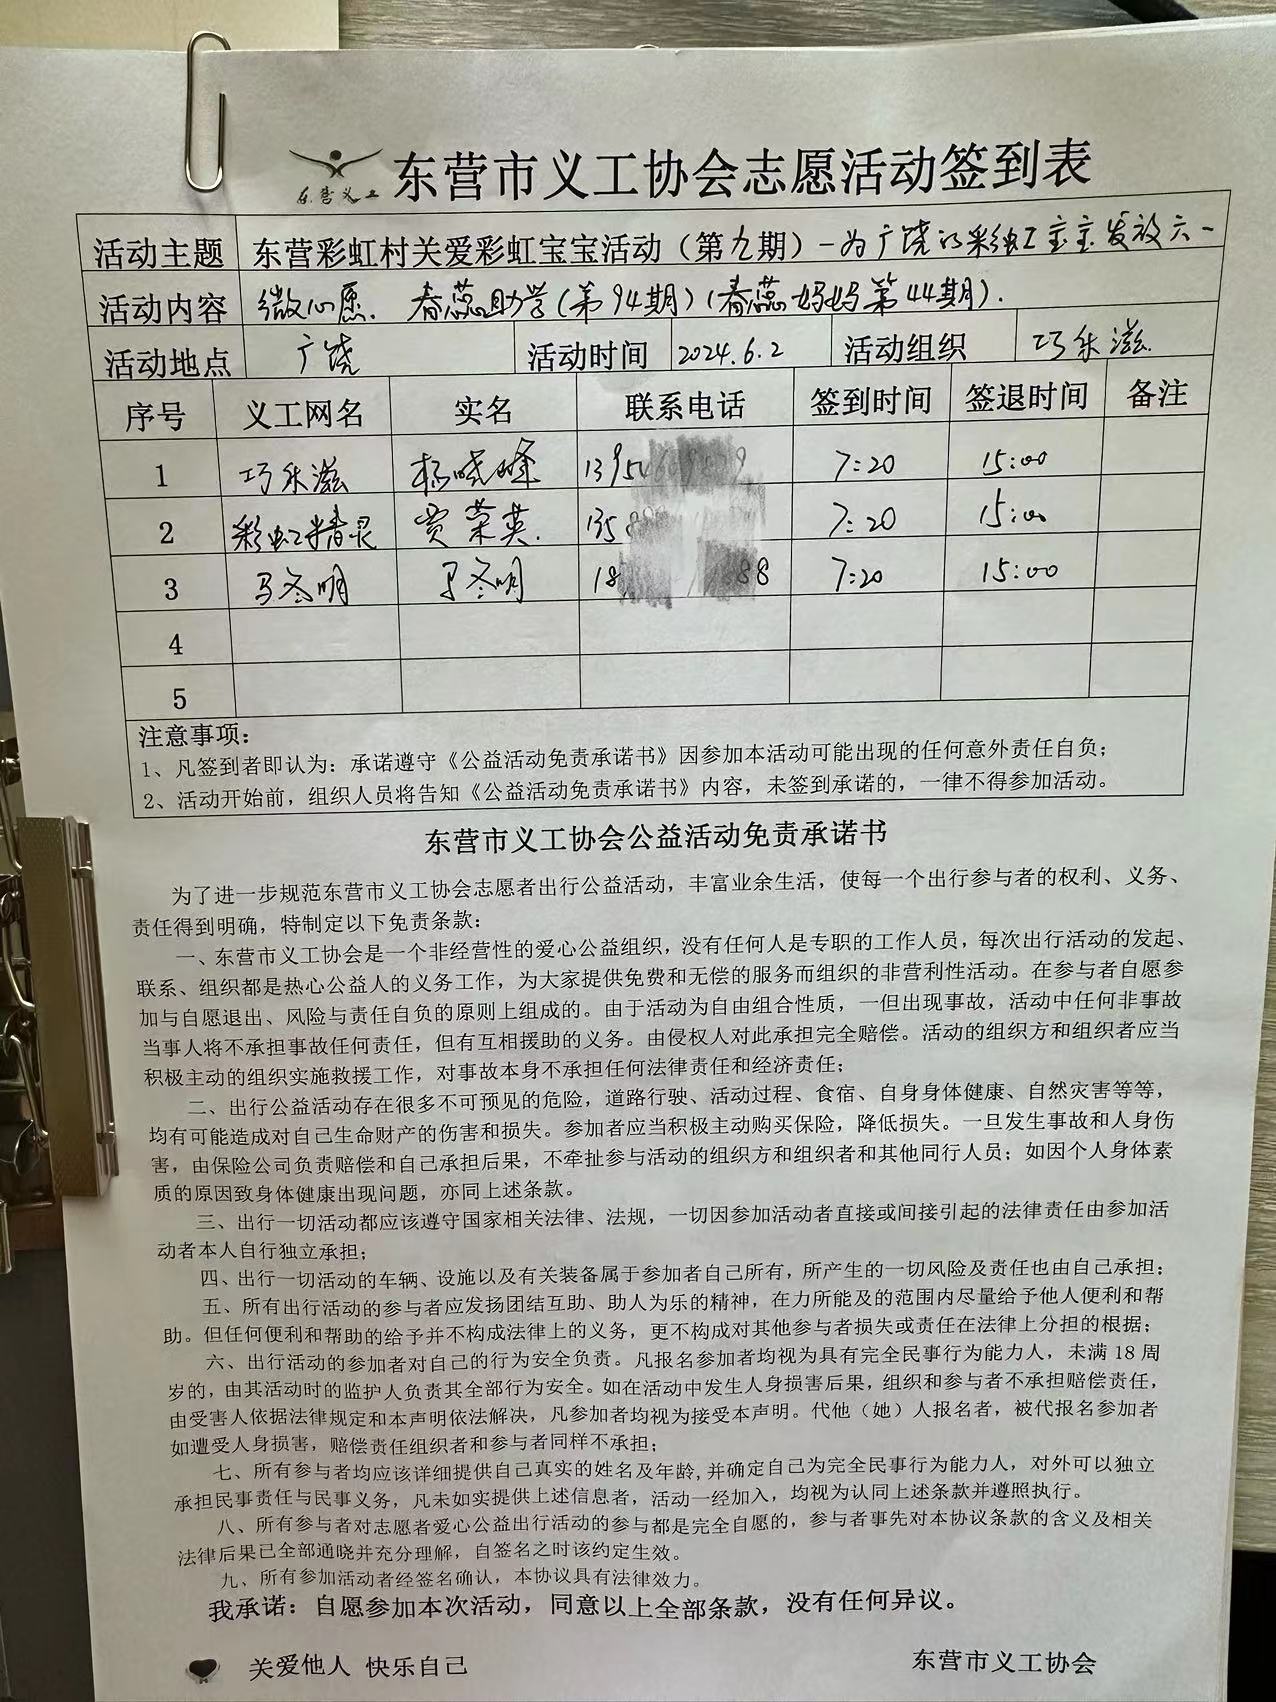 东营义工
东营市义工协会志愿活动签到表
活动主题 东营彩虹村关爱彩虹宝宝活动（第九期）-为广饶的彩虹宝宝发放六一
活动内容 微心愿. 春蕊助学(第94期)(春蕊妈妈第44期).
活动地点 广饶 活动时间 2024.6.2 活动组织 巧乐滋
序号 义工网名 实名 联系电话 签到时间 签退时间 备注
1 巧乐滋 杨晓峰 7:20 15:00
2 彩虹精灵 贾荣英. 7:20 15:00
3 马冬明 马冬明 7:20 15:00
4
5
注意事项：
1、凡签到者即认为：承诺遵守《公益活动免责承诺书》因参加本活动可能出现的任何意外责任自负；
2、活动开始前，组织人员将告知《公益活动免责承诺书》内容，未签到承诺的，一律不得参加活动。
东营市义工协会公益活动免责承诺书
为了进一步规范东营市义工协会志愿者出行公益活动，丰富业余生活，使每一个出行参与者的权利、义务、
责任得到明确，特制定以下免责条款：
一、东营市义工协会是一个非经营性的爱心公益组织，没有任何人是专职的工作人员，每次出行活动的发起、
联系、组织都是热心公益人的义务工作，为大家提供免费和无偿的服务而组织的非营利性活动。在参与者自愿参
加与自愿退出、风险与责任自负的原则上组成的。由于活动为自由组合性质，一但出现事故，活动中任何非事故
当事人将不承担事故任何责任，但有互相援助的义务。由侵权人对此承担完全赔偿。活动的组织方和组织者应当
积极主动的组织实施救援工作，对事故本身不承担任何法律责任和经济责任；
二、出行公益活动存在很多不可预见的危险，道路行驶、活动过程、食宿、自身身体健康、自然灾害等等，
均有可能造成对自己生命财产的伤害和损失。参加者应当积极主动购买保险，降低损失。一旦发生事故和人身伤
害，由保险公司负责赔偿和自己承担后果，不牵扯参与活动的组织方和组织者和其他同行人员；如因个人身体素
质的原因致身体健康出现问题，亦同上述条款。
三、出行一切活动都应该遵守国家相关法律、法规，一切因参加活动者直接或间接引起的法律责任由参加活
动者本人自行独立承担；
四、出行一切活动的车辆、设施以及有关装备属于参加者自己所有，所产生的一切风险及责任也由自己承担；
五、所有出行活动的参与者应发扬团结互助、助人为乐的精神，在力所能及的范围内尽量给予他人便利和帮
助。但任何便利和帮助的给予并不构成法律上的义务，更不构成对其他参与者损失或责任在法律上分担的根据；
六、出行活动的参加者对自己的行为安全负责。凡报名参加者均视为具有完全民事行为能力人，未满 18 周
岁的，由其活动时的监护人负责其全部行为安全。如在活动中发生人身损害后果，组织和参与者不承担赔偿责任，
由受害人依据法律规定和本声明依法解决，凡参加者均视为接受本声明。代他（她）人报名者，被代报名参加者
如遭受人身损害，赔偿责任组织者和参与者同样不承担；
七、所有参与者均应该详细提供自己真实的姓名及年龄，并确定自己为完全民事行为能力人，对外可以独立
承担民事责任与民事义务，凡未如实提供上述信息者，活动一经加入，均视为认同上述条款并遵照执行。
八、所有参与者对志愿者爱心公益出行活动的参与都是完全自愿的，参与者事先对本协议条款的含义及相关
法律后果已全部通晓并充分理解，自签名之时该约定生效。
九、所有参加活动者经签名确认，本协议具有法律效力。
我承诺：自愿参加本次活动，同意以上全部条款，没有任何异议。
关爱他人 快乐自己 东营市义工协会